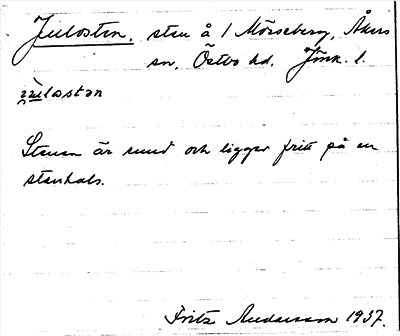 Julosten, sten å / Mörseberg, Åkers
sn, Östbo hd. Jönk. l.
Stenen är rund och ligger fritt på en
stenhals.
Fritz Andersson 1937.